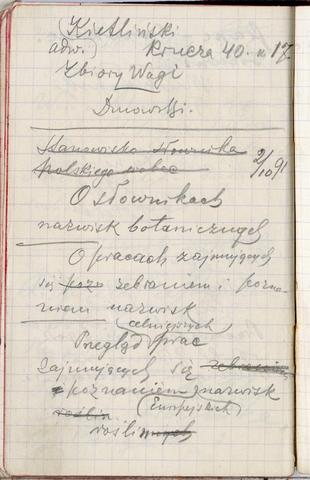 (Kietliński
adw.) Krucza 40. m 17.
Zbiory Wagi
Dmowski.
Stanowisko słownika
polskiego wobec
2/10 91
O słownikach
nazwisk botanicznych
O pracach zajmujących
się zebraniem i pozna-
niem nazwisk
celniejszych
Przegląd prac
zajmujących się zebraniem
poznaniem nazwisk
roślin (Europejskich)
roślinnych